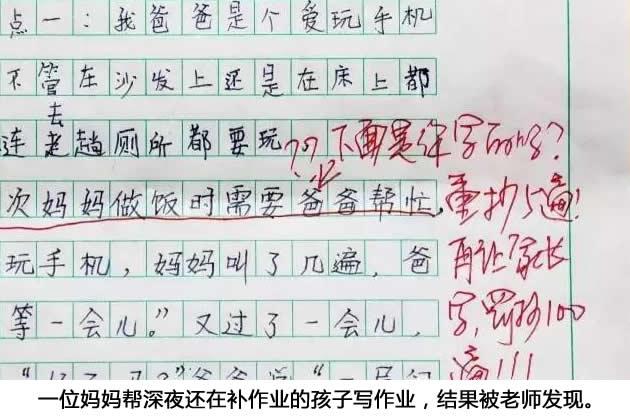 点一：我爸爸是个爱玩手机
不管在沙发上还是在床上都
去
连老趟厕所都要玩
？？下面是谁字
重抄5遍！
次妈妈做饭时需要爸爸帮忙，
玩手机，妈妈叫了几遍，爸
再让家长
等一会儿。”又过了一会儿，
字，罚抄100
遍！！！
一位妈妈帮深夜还在补作业的孩子写作业，结果被老师发现。